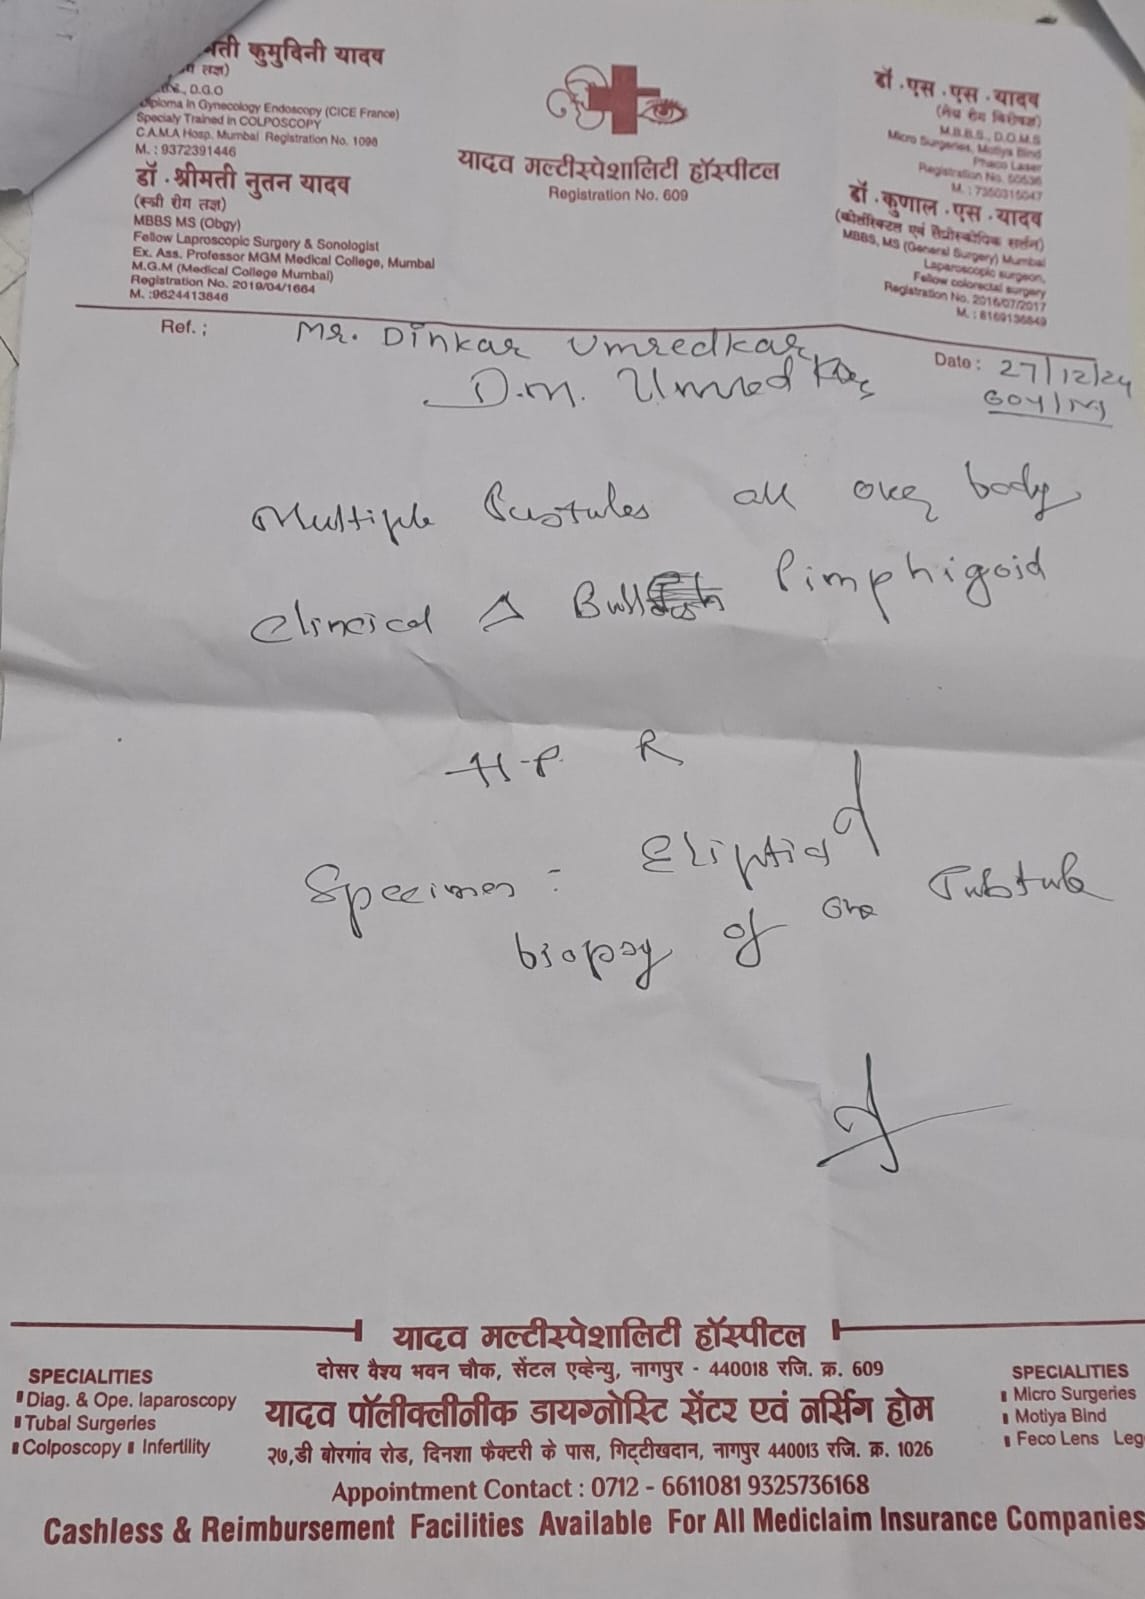 मती कुमुदिनी यादव
रोग तज्ञ)
D.G.O
Diploma in Gynecology Endoscopy (CICE France)
Specialy Trained in COLPOSCOPY
C.A.M.A Hosp. Mumbai Registration No. 1098
M. : 9372391446
डॉ . श्रीमती नुतन यादव
(स्त्री रोग तज्ञ)
MBBS MS (Obgy)
Fellow Laproscopic Surgery & Sonologist
Ex. Ass. Professor MGM Medical College, Mumbai
M.G.M (Medical College Mumbai)
Registration No. 2019/04/1664
M. :9624413846
यादव मल्टीस्पेशालिटी हॉस्पीटल
Registration No. 609
डॉ . एस . एस . यादव
(नेत्र रोग विशेषज्ञ)
M.B.B.S., D.O.M.S
Micro Surgeries, Motiya Bind
Phaco Laser
Registration No. 50536
M. : 7350315047
डॉ . कुणाल . एस . यादव
(कोलोरेक्टल एवं लैप्रोस्कोपिक सर्जन)
MBBS, MS (General Surgery) Mumbai
Laparoscopic surgeon,
Fellow colorectal surgery
Registration No. 2016/07/2017
M. : 8169136849
Ref. : Mr. Dinkar Umredkar
D.M. Umredkar
Date : 27/12/24
60Y/M
Multiple Pustules all over body
Clincical Δ Bull Pimphigoid
H.P. R
Specimen : Eliptical
biopsy of one Pustule
यादव मल्टीस्पेशालिटी हॉस्पीटल
दोसर वैश्य भवन चौक, सेंटल एव्हेन्यु, नागपुर - 440018 रजि. क्र. 609
यादव पॉलीक्लीनीक डायग्नोस्टि सेंटर एवं नर्सिंग होम
२७,डी बोरगांव रोड, दिनशा फैक्टरी के पास, गिट्टीखदान, नागपुर 440013 रजि. क्र. 1026
Appointment Contact : 0712 - 6611081 9325736168
SPECIALITIES
Diag. & Ope. laparoscopy
Tubal Surgeries
Colposcopy Infertility
SPECIALITIES
Micro Surgeries
Motiya Bind
Feco Lens Leg
Cashless & Reimbursement Facilities Available For All Mediclaim Insurance Companies